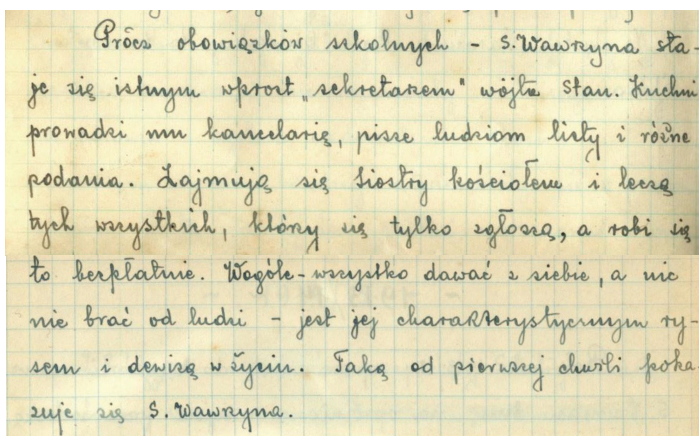 Prócz obowiązków szkolnych - S. Wawrzyna sta-
je się istnym wprost "sekretarzem" wójta Stan. Kuchni
prowadzi mu kancelarię, pisze ludziom listy i różne
podania. Zajmują się Siostry kościołem i leczą
tych wszystkich, którzy się tylko zgłoszą, a robi się
to bezpłatnie. Wogóle - wszystko dawać z siebie, a nic
nie brać od ludzi - jest jej charakterystycznym ry-
sem i dewizą w życiu. Taką od pierwszej chwili poka-
zuje się S. Wawrzyna.